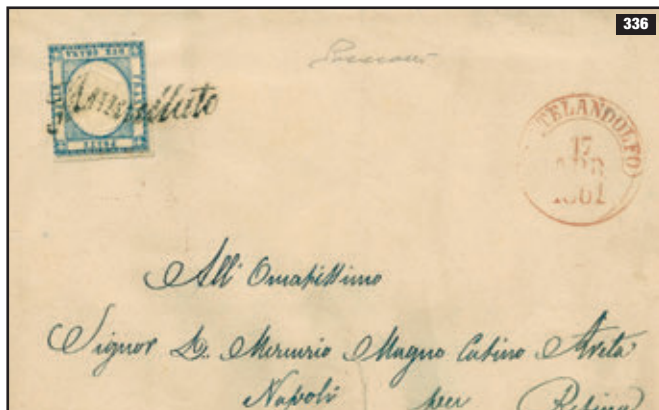 336
Annullato
TELANDOLFO
17
APR
1861
All' Ornatissimo
Signor D. Mercurio Magno Cutino Areta
Napoli per Resina